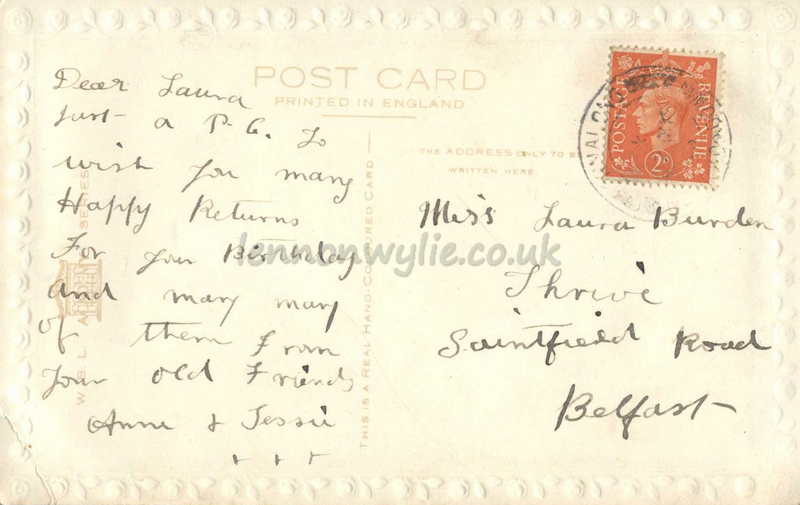 POST CARD
PRINTED IN ENGLAND
Dear Laura
Just a P.C. to
wish you many
Happy Returns
For your Birthday
and many many
of them From
your old Friends
Anne & Jessie
+ + +
THIS IS A REAL HAND-COLOURED CARD
W.B.L.
SERIES
THE ADDRESS ONLY TO BE
WRITTEN HERE.
Miss Laura Burden
Thrive
Saintfield Road
Belfast
POSTAGE
REVENUE
2D
lennonwylie.co.uk